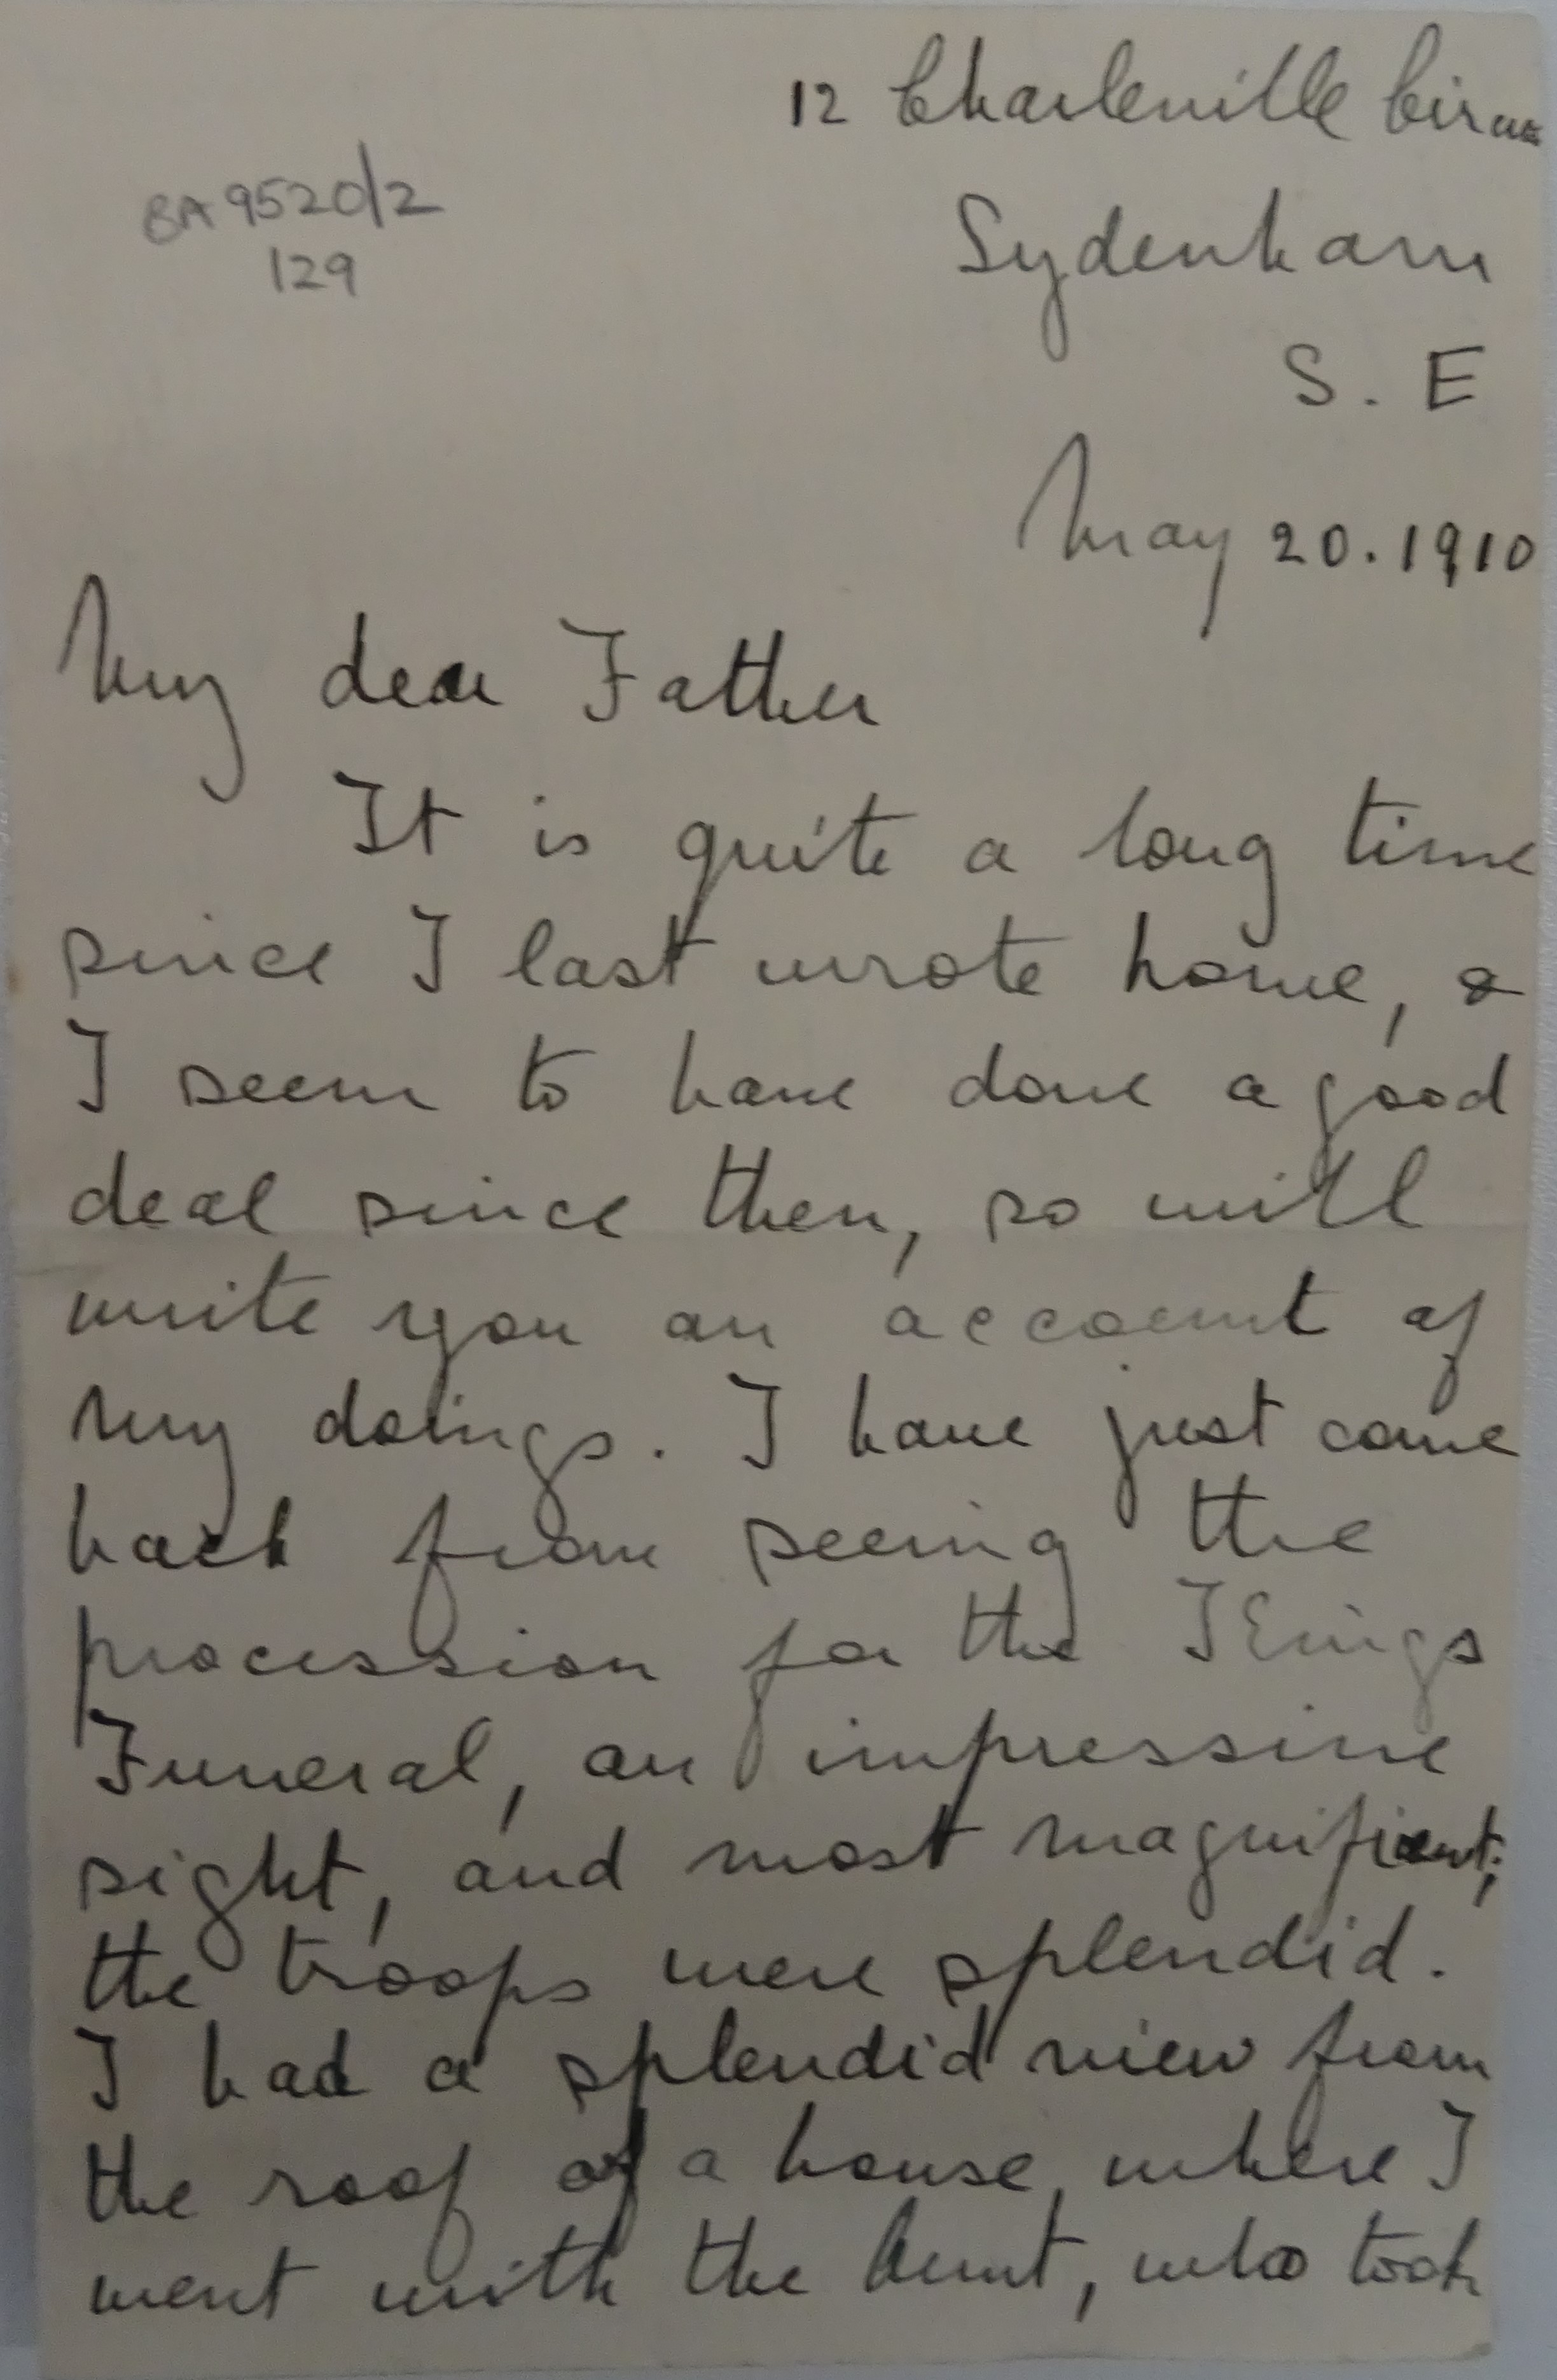 12 Charleville Circus
BA 9520/2
129
Sydenham
S. E
May 20. 1910
My dear Father
It is quite a long time
since I last wrote home, &
I seem to have done a good
deal since then, so will
write you an account of
my doings. I have just come
back from seeing the
procession for the Kings
Funeral, an impressive
sight, and most magnificent;
the troops were splendid.
I had a splendid view from
the roof of a house, where I
went with the Aunt, who took